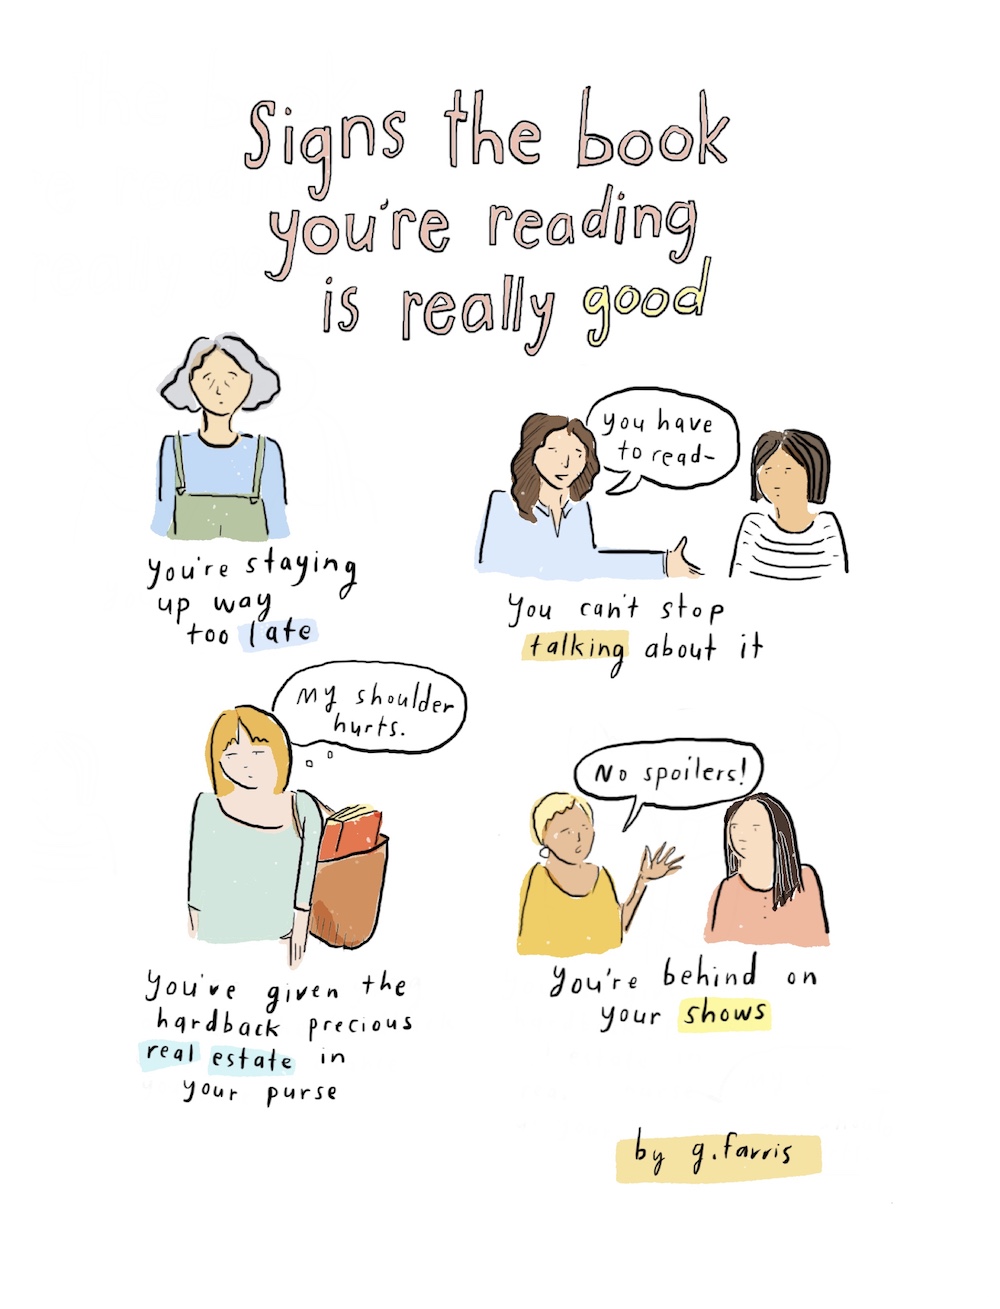 Signs the book
you're reading
is really good
you have
to read-
you're staying
up way
too late
you can't stop
talking about it
My shoulder
hurts.
No spoilers!
you've given the
hardback precious
real estate in
your purse
you're behind on
your shows
by g.farris